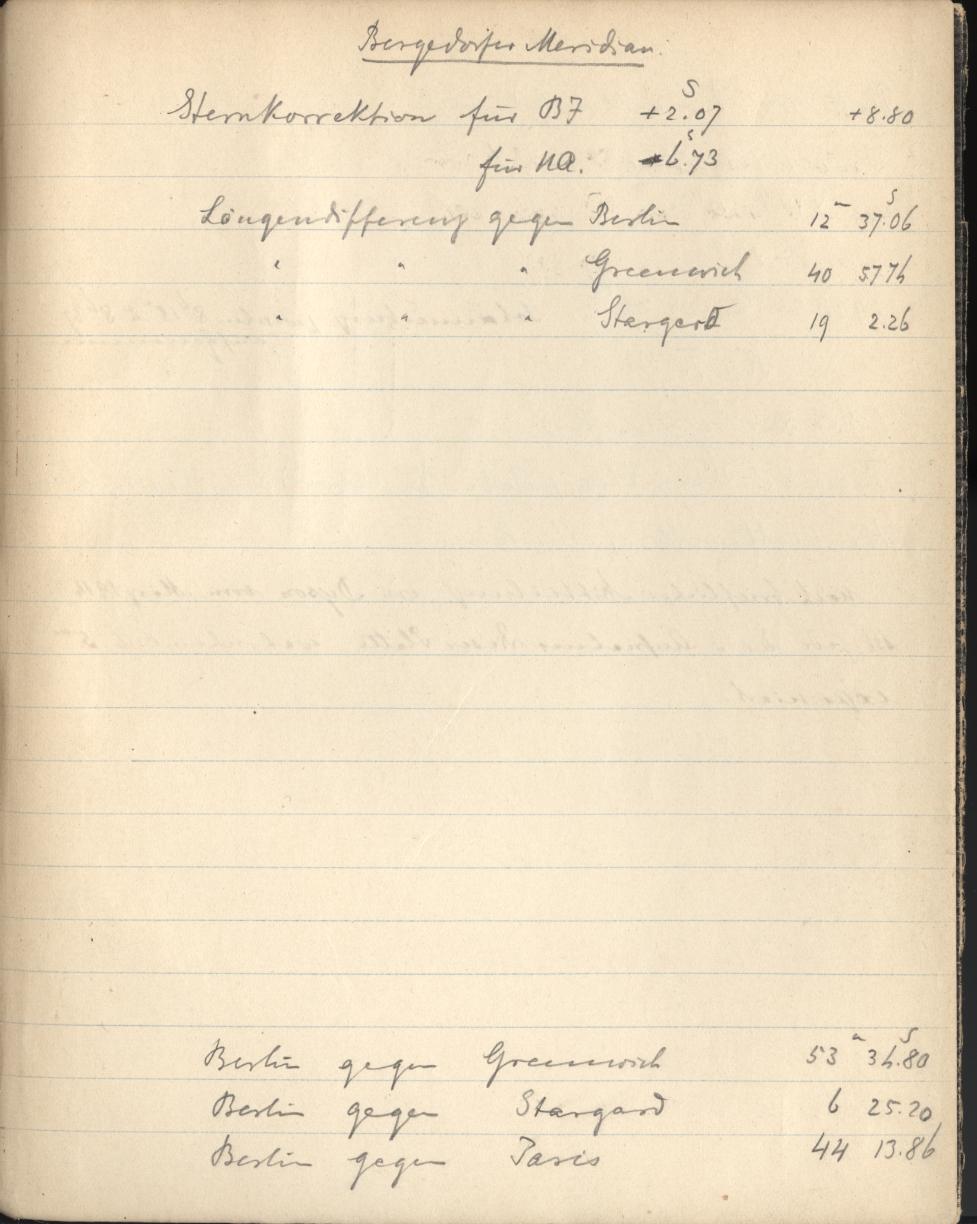 Bergedorfer Meridian.
Sternkorrektion für BJ +2.07ˢ +8.80
für NA. +6.73ˢ
Längendifferenz gegen Berlin 12ᵐ 37.06ˢ
" " " Greenwich 40 57 74
" " " Stargard 19 2.26
Berlin gegen Greenwich 53ᵐ 34.80ˢ
Berlin gegen Stargard 6 25.20
Berlin gegen Paris 44 13.86